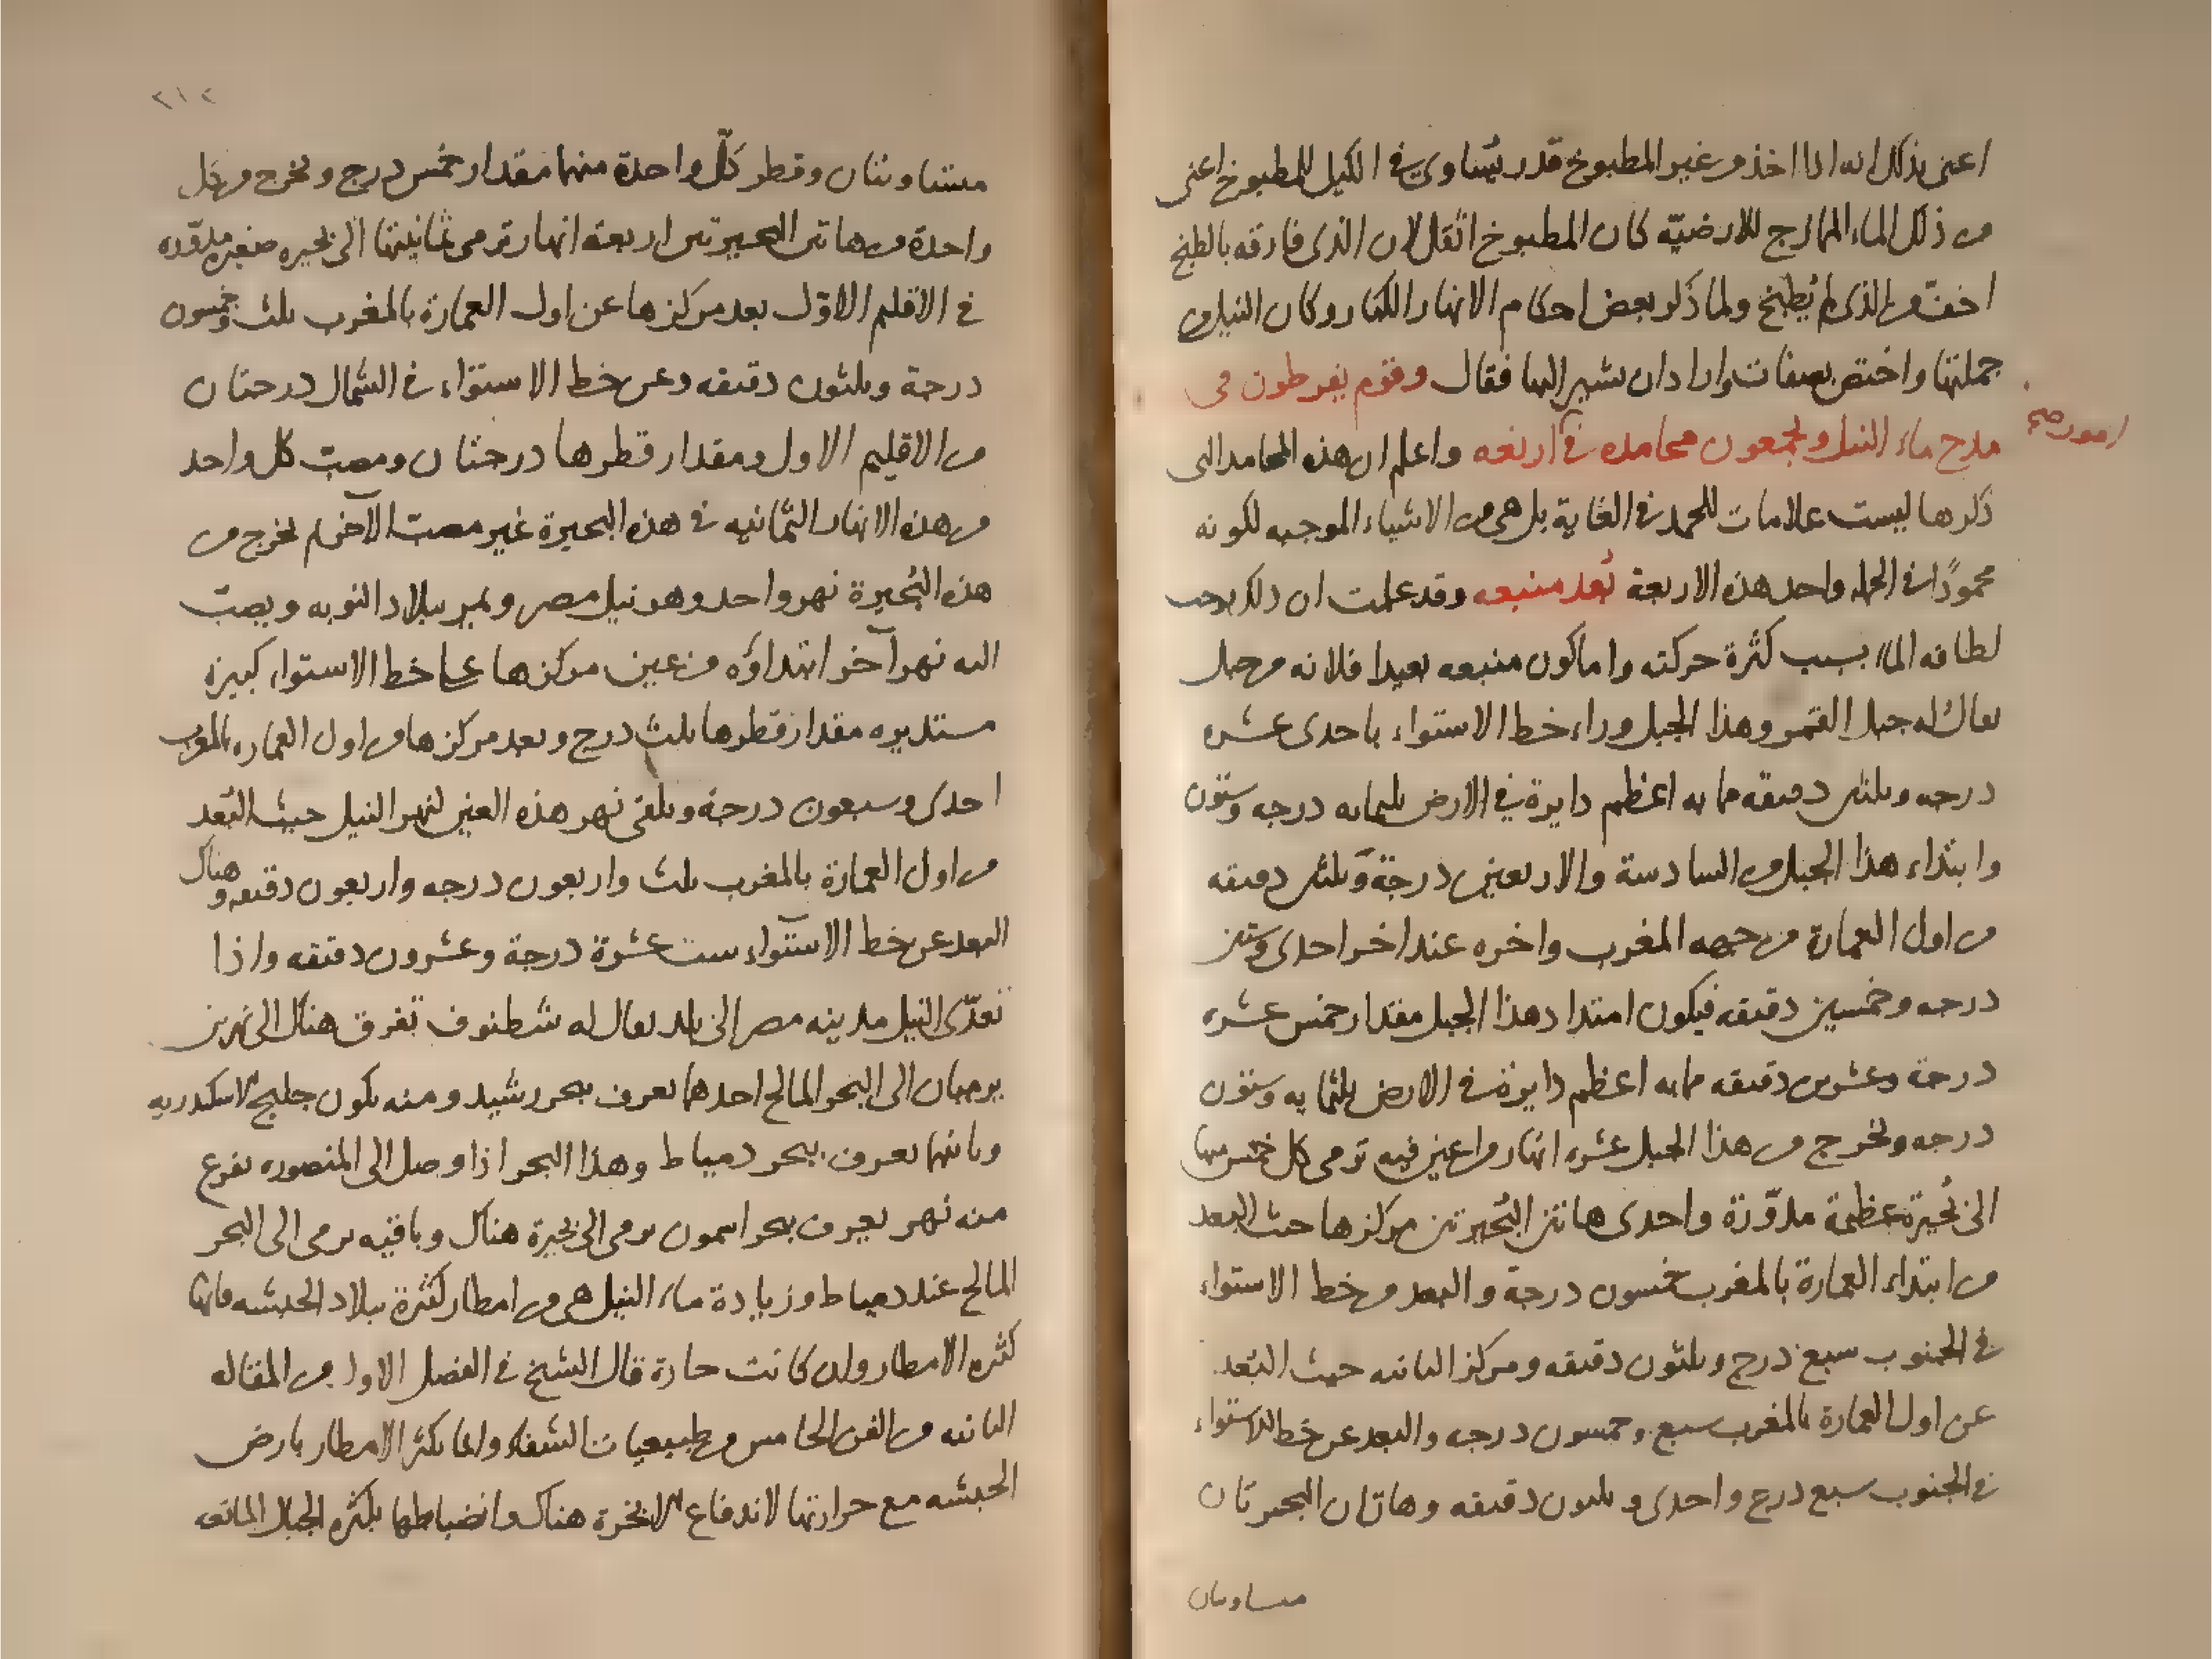 اعنى بذلك انه اذا اخذ من غير المطبوخ قدر يساوى فى الكيل للمطبوخ اعنى
من ذلك الماء الممازج للارضيّة كان المطبوخ اثقل لان الذى فارقه بالطبخ
اخفّ من الذى لم يُطبخ ولما ذكر بعض احكام الانهار الكبار وكان النيل من
جملتها واختص بصفات واراد ان يشير اليها فقال وقوم يفرطون فى
مدح ماء النيل ويجمعون محامده فى اربعه واعلم ان هذه المحامد التى
امور صح
ذكرها ليست علامات للحمد فى الغاية بل هى من الاشياء الموجبه لكونه
محمودًا فى الجمله واحد هذه الاربعة بُعد منبعه وقد علمت ان ذلك يوجب
لطافه الماء بسبب كثرة حركته واما كون منبعه بعيدا فلانه من جبل
يقال له جبل القمر وهذا الجبل وراء خط الاستواء باحدى عشره
درجه وثلثين دقيقه مما به اعظم دايرة فى الارض ثلثمايه درجه وستون
وابتداء هذا الجبل من السادسة والاربعين درجة وثلثين دقيقه
من اول العمارة من جهه المغرب واخره عند اخر احدى وستين
درجه وخمسين دقيقه فيكون امتداد هذا الجبل مقدار خمس عشره
درجة وعشرين دقيقه مما به اعظم دايرة فى الارض ثلثمايه وستون
درجه ويخرج من هذا الجبل عشره انهار من اعين فيه ترمى كل خمس منها
الى بُحيرة عظيمة مدوّرة واحدى هاتين البُحيرتين مركزها حيث البعد
من ابتداء العمارة بالمغرب خمسون درجة والبعد من خط الاستواء
فى الجنوب سبع درج وثلثون دقيقه ومركز الثانيه حيث البُعد
عن اول العمارة بالمغرب سبع وخمسون درجه والبعد عن خط الاستواء
فى الجنوب سبع درج واحدى وثلثون دقيقه وهاتان البحيرتان
متساويتان
٢١٢
متساويتان وقطر كلّ واحدة منهما مقدار خمس درج ويخرج من كل
واحدة من هاتين البحيرتين اربعة انهار ترمى ثمانيتها الى بحيره صغيره مدوّره
فى الاقليم الاوّل بعد مركزها عن اول العمارة بالمغرب ثلث وخمسون
درجة وثلثون دقيقه وعن خط الاستواء فى الشمال درجتان
من الاقليم الاول ومقدار قطرها درجتان ومصب كل واحد
من هذه الانهار الثمانيه فى هذه البحيرة غير مصب الآخر ثم يخرج من
هذه البُحيرة نهر واحد وهو نيل مصر ويمر ببلاد النوبه ويصب
اليه نهر آخر ابتداؤه من عين مركزها على خط الاستواء كبيرة
مستديره مقدار قطرها ثلث درج وبعد مركزها من اول العماره بالمغرب
احدى وسبعون درجة ويلقى نهر هذه العين لنهر النيل حيث البُعد
من اول العمارة بالمغرب ثلث واربعون درجه واربعون دقيقه وهناك
البعد عن خط الاستواء ست عشرة درجة وعشرون دقيقه واذا
تعدّى النيل مدينه مصر الى بلد يقال له شطنوف تفرق هناك الى نهرين
يرميان الى البحر المالح احدهما يعرف ببحر رشيد ومنه يكون خليج الاسكندريه
وثانيهما يعرف ببحر دمياط وهذا البحر اذا وصل الى المنصوره تفرع
منه نهر يعرف ببحر اشمون يرمى الى بحيرة هناك وباقيه يرمى الى البحر
المالح عند دمياط وزيادة ماء النيل هى من امطار كثيرة ببلاد الحبشه فانها
كثيره الامطار وان كانت حارة قال الشيخ فى الفصل الاول من المقاله
الثانيه من الفن الخامس من طبيعيات الشفاء وانما تكثر الامطار بارض
الحبشه مع حرارتها لاندفاع الابخرة هناك وانضباطها بكثره الجبال المانعه